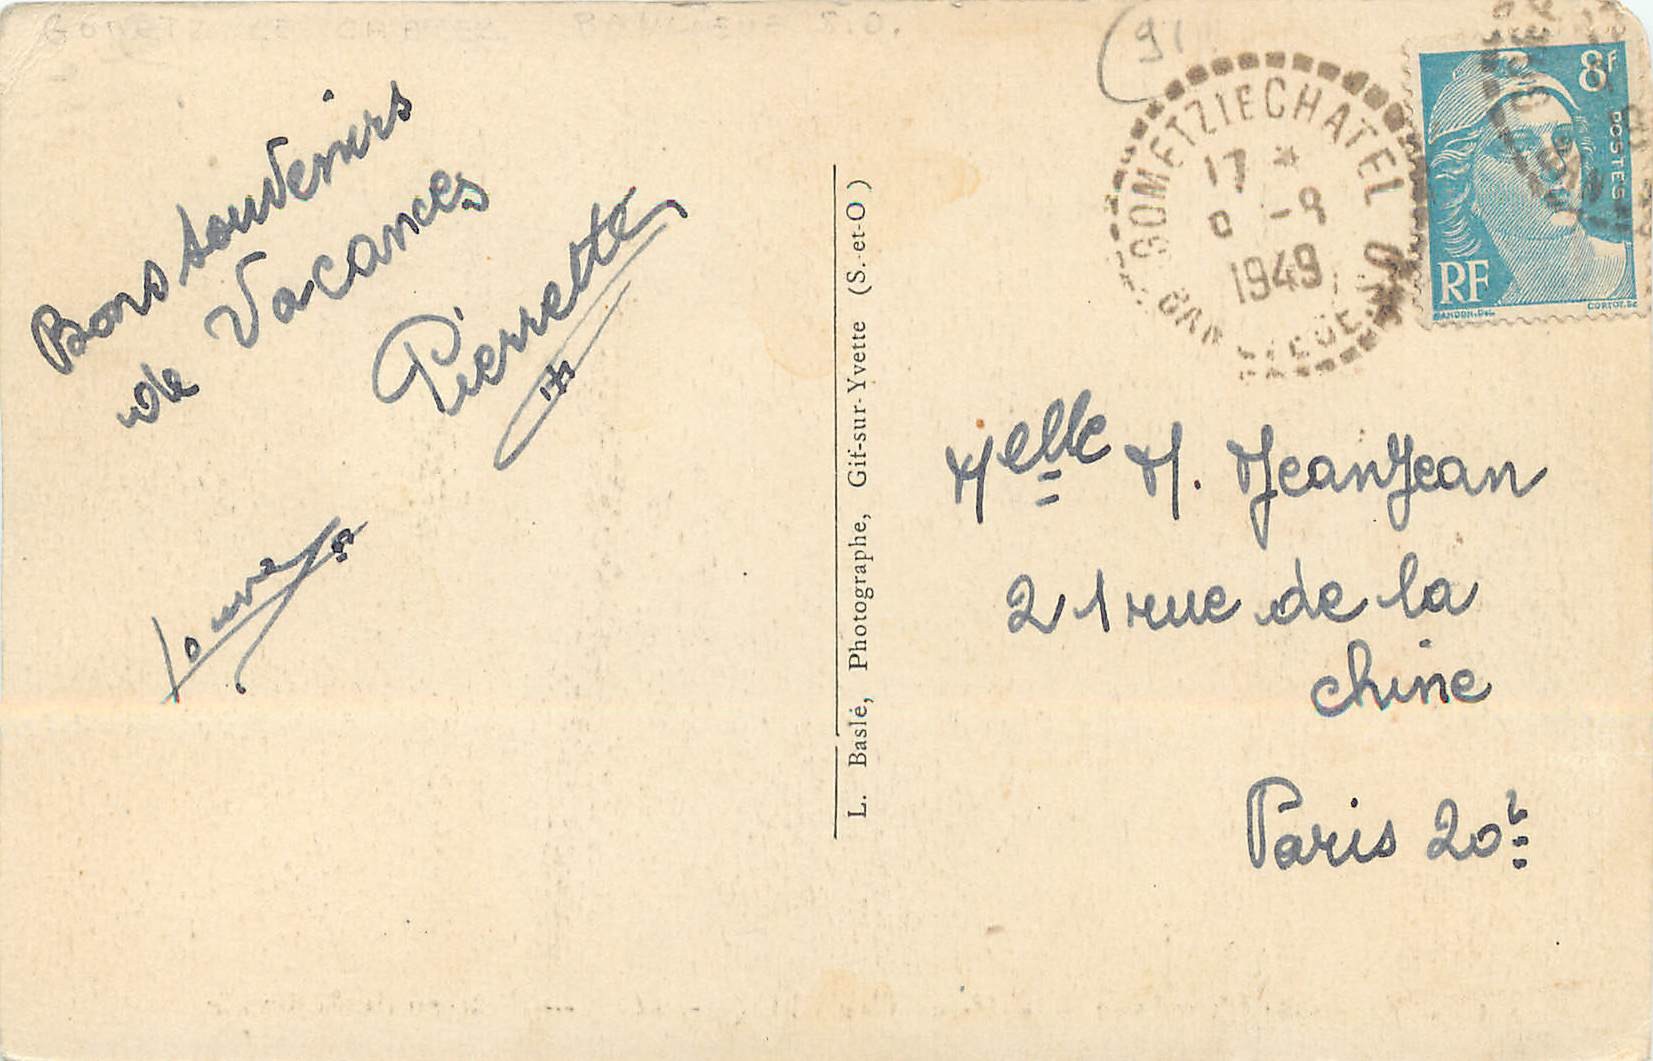 Bons souvenirs
de Vacances
Pierrette
L. Baslé, Photographe, Gif-sur-Yvette (S.-et-O)
91
GOMETZ LE CHATEL
17 *
8 -9
1949
8f
POSTES
RF
GANDON. DEL.
CORTOT. SC
Melle M. JeanJean
21 rue de la
chine
Paris 20e